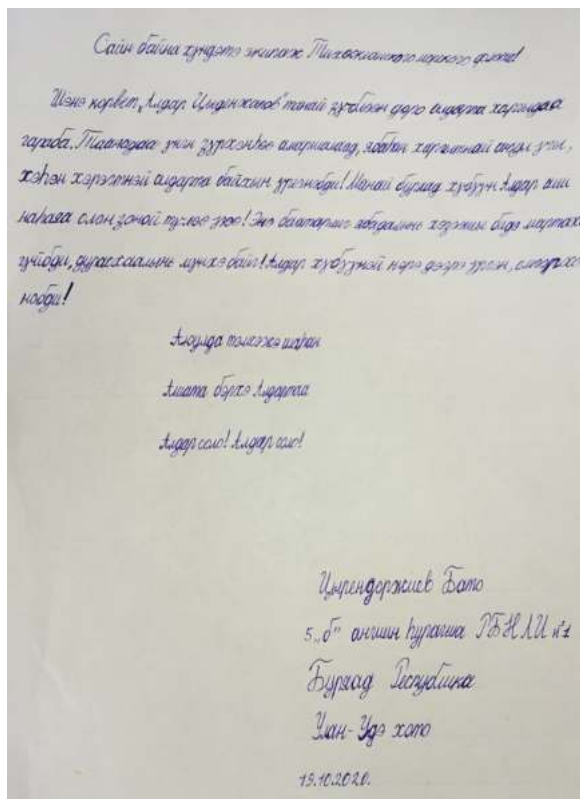 Сайн байна хүндэтэ экипаж Тихоокеанского морского флота!
Шэнэ корвет „Алдар Цыденжапов" танай зүгһөөн дээрэ алдарта харгыдаа
гараба. Таанадаа үнэн зүрхэнһөө амаршалаад, ябаһан харгытнай аюул үгы,
хэһэн хэрэгтнэй алдарта байхын үреэнэбди! Манай буряад хүбүүн Алдар ами
наһаяа олон зоной түлөө үгөө! Энэ баатарлиг ябадалынь хэзээшье бидэ мартаха
гүйбди, дурасхаалынь мүнхэ байг! Алдар хүбүүнэй нэрэ дээрэ үргэн, омогорхо
нобди!
Аюулда тэмсэжэ шадаһан
Амата бэрхэ Алдартаа
Алдар соло! Алдар соло!
Цырендоржиев Бато
5 „б" ангиин һурагша РБНЛИ №1
Буряад Республика
Улан-Удэ хото
19.10.2020.